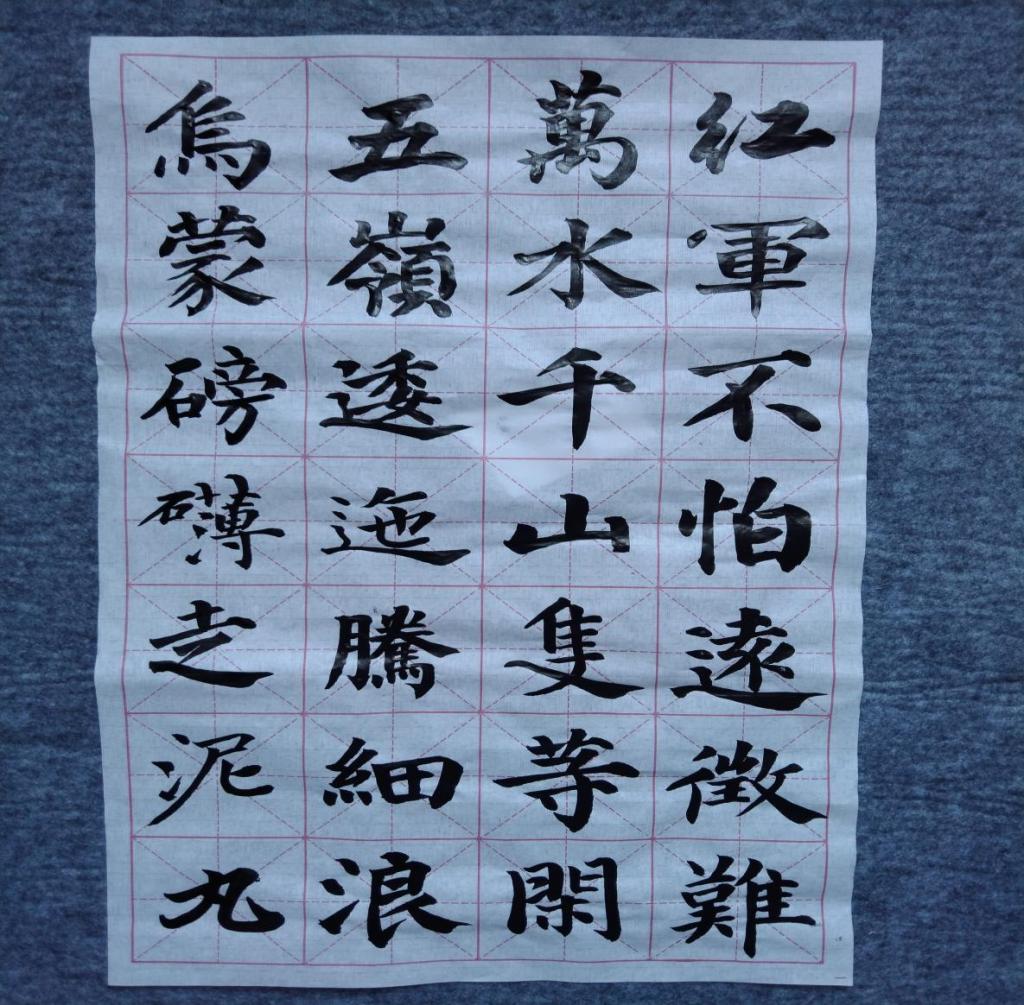 紅軍不怕遠徵難
萬水千山隻等閑
五嶺逶迤騰細浪
烏蒙磅礴走泥丸